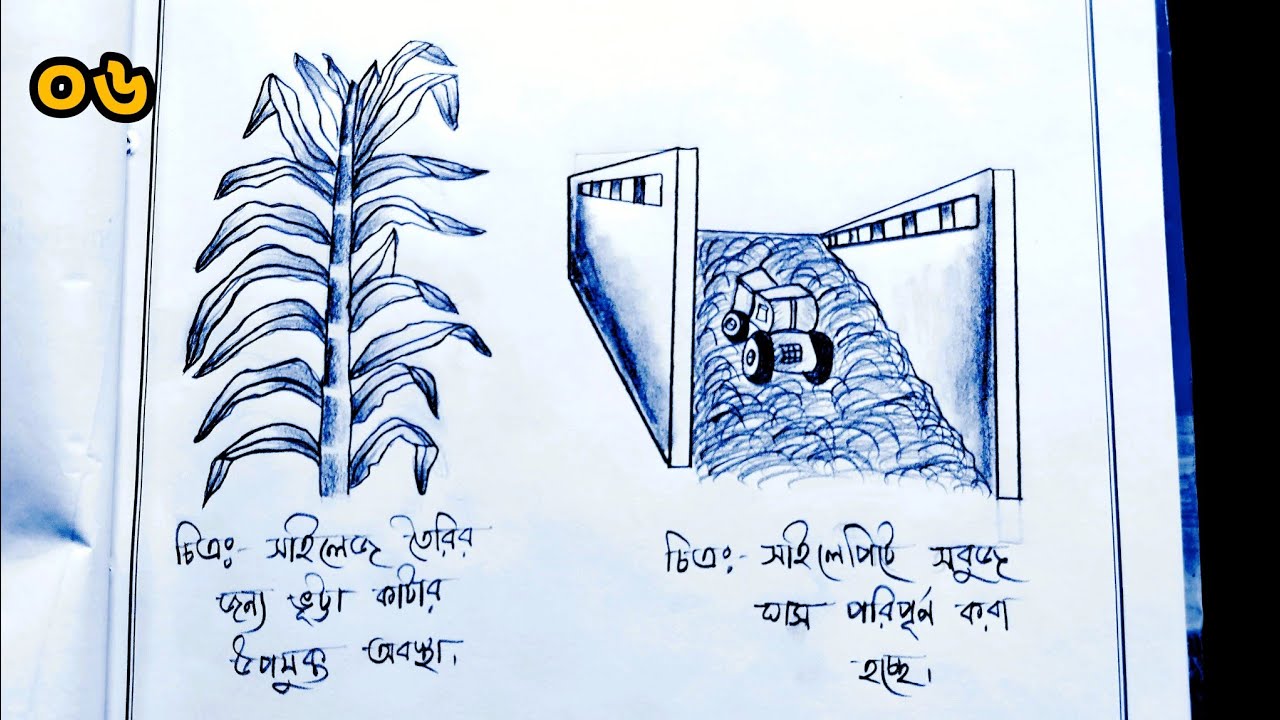 ০৬
চিত্র:- সাইলেজ তৈরির
জন্য ভূট্টা কাটার
উপযুক্ত অবস্থা।
চিত্র:- সাইলেপিটে সবুজ
ঘাস পরিপূর্ন করা
হচ্ছে।